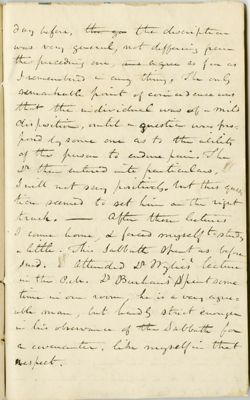 day before, the description
was very general, not differing from
the preceding one, as far as
I remembered in any thing. The only
remarkable point of coincidence was
that the individual was of a mild
disposition, until a question was pro-
posed by some one as to the ability
of the person to endure pain. The
Dr then entered into particulars,
I will not say positively, but this ques-
tion seemed to set him on the right
track. — After these lectures
I came home, & forced myself to study
a little. This Sabbath spent as before
said. I attended Dr Wylie's lecture
in the P.M. Dr spent some
time in our room, he is a very agree-
able man, but hardly strict enough
in his observance of the Sabbath for
a covenanter. like myself in that
respect.